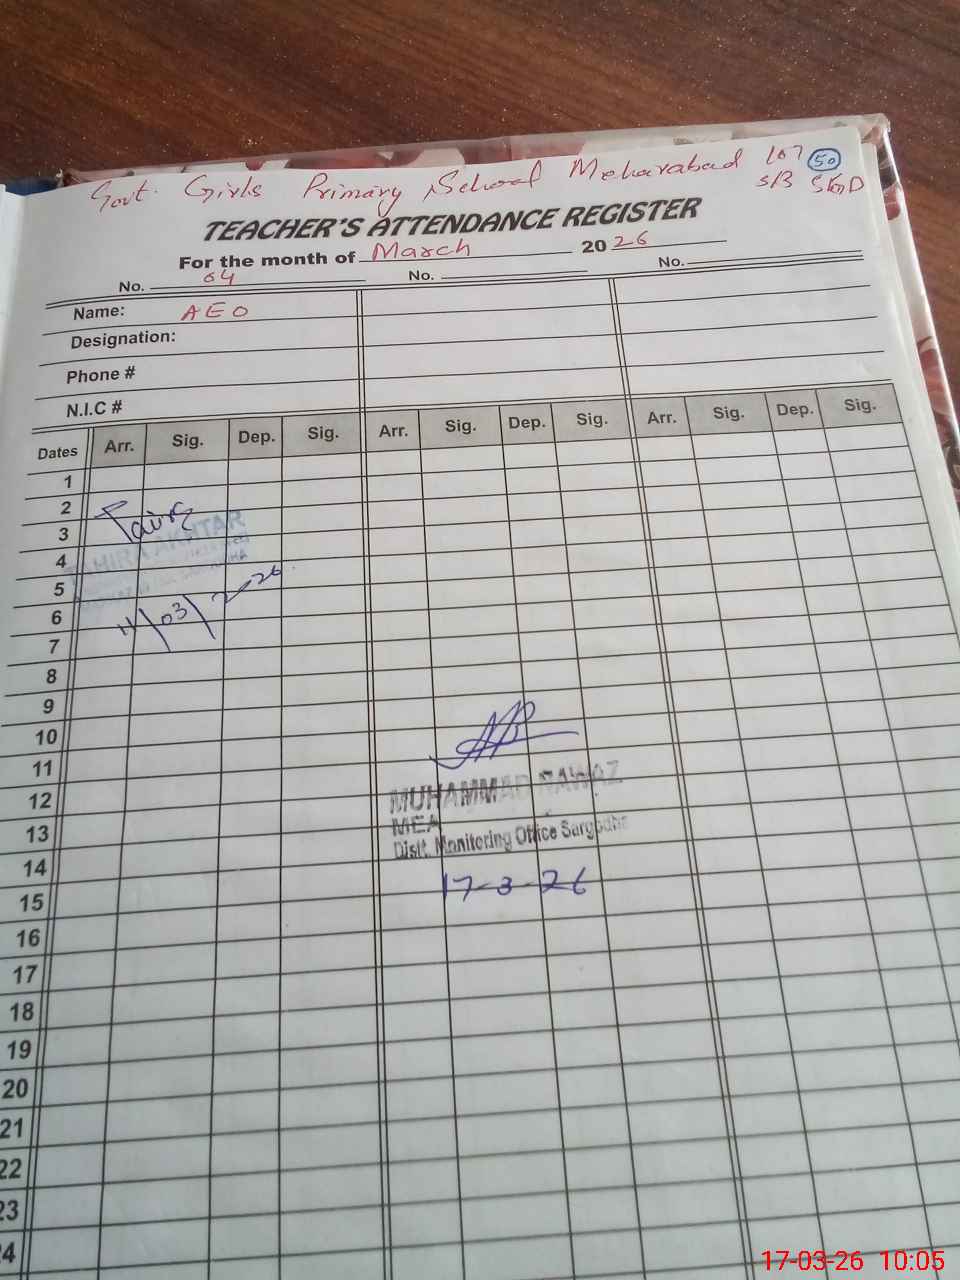 Govt. Girls Primary School Meharabad 107 50
S/B SGD
TEACHER'S ATTENDANCE REGISTER
For the month of March 2026
No. 04 No. No.
Name: AEO
Designation:
Phone #
N.I.C #
Dates Arr. Sig. Dep. Sig. Arr. Sig. Dep. Sig. Arr. Sig. Dep. Sig.
1
2
3
TAHIRA AKHTAR
4
5
11/03/2026
6
7
8
9
10
11
12
MUHAMMAD NAWAZ
MEA
13
Distt. Monitoring Office Sargodha
14
17-3-26
15
16
17
18
19
20
21
22
23
24
17-03-26 10:05